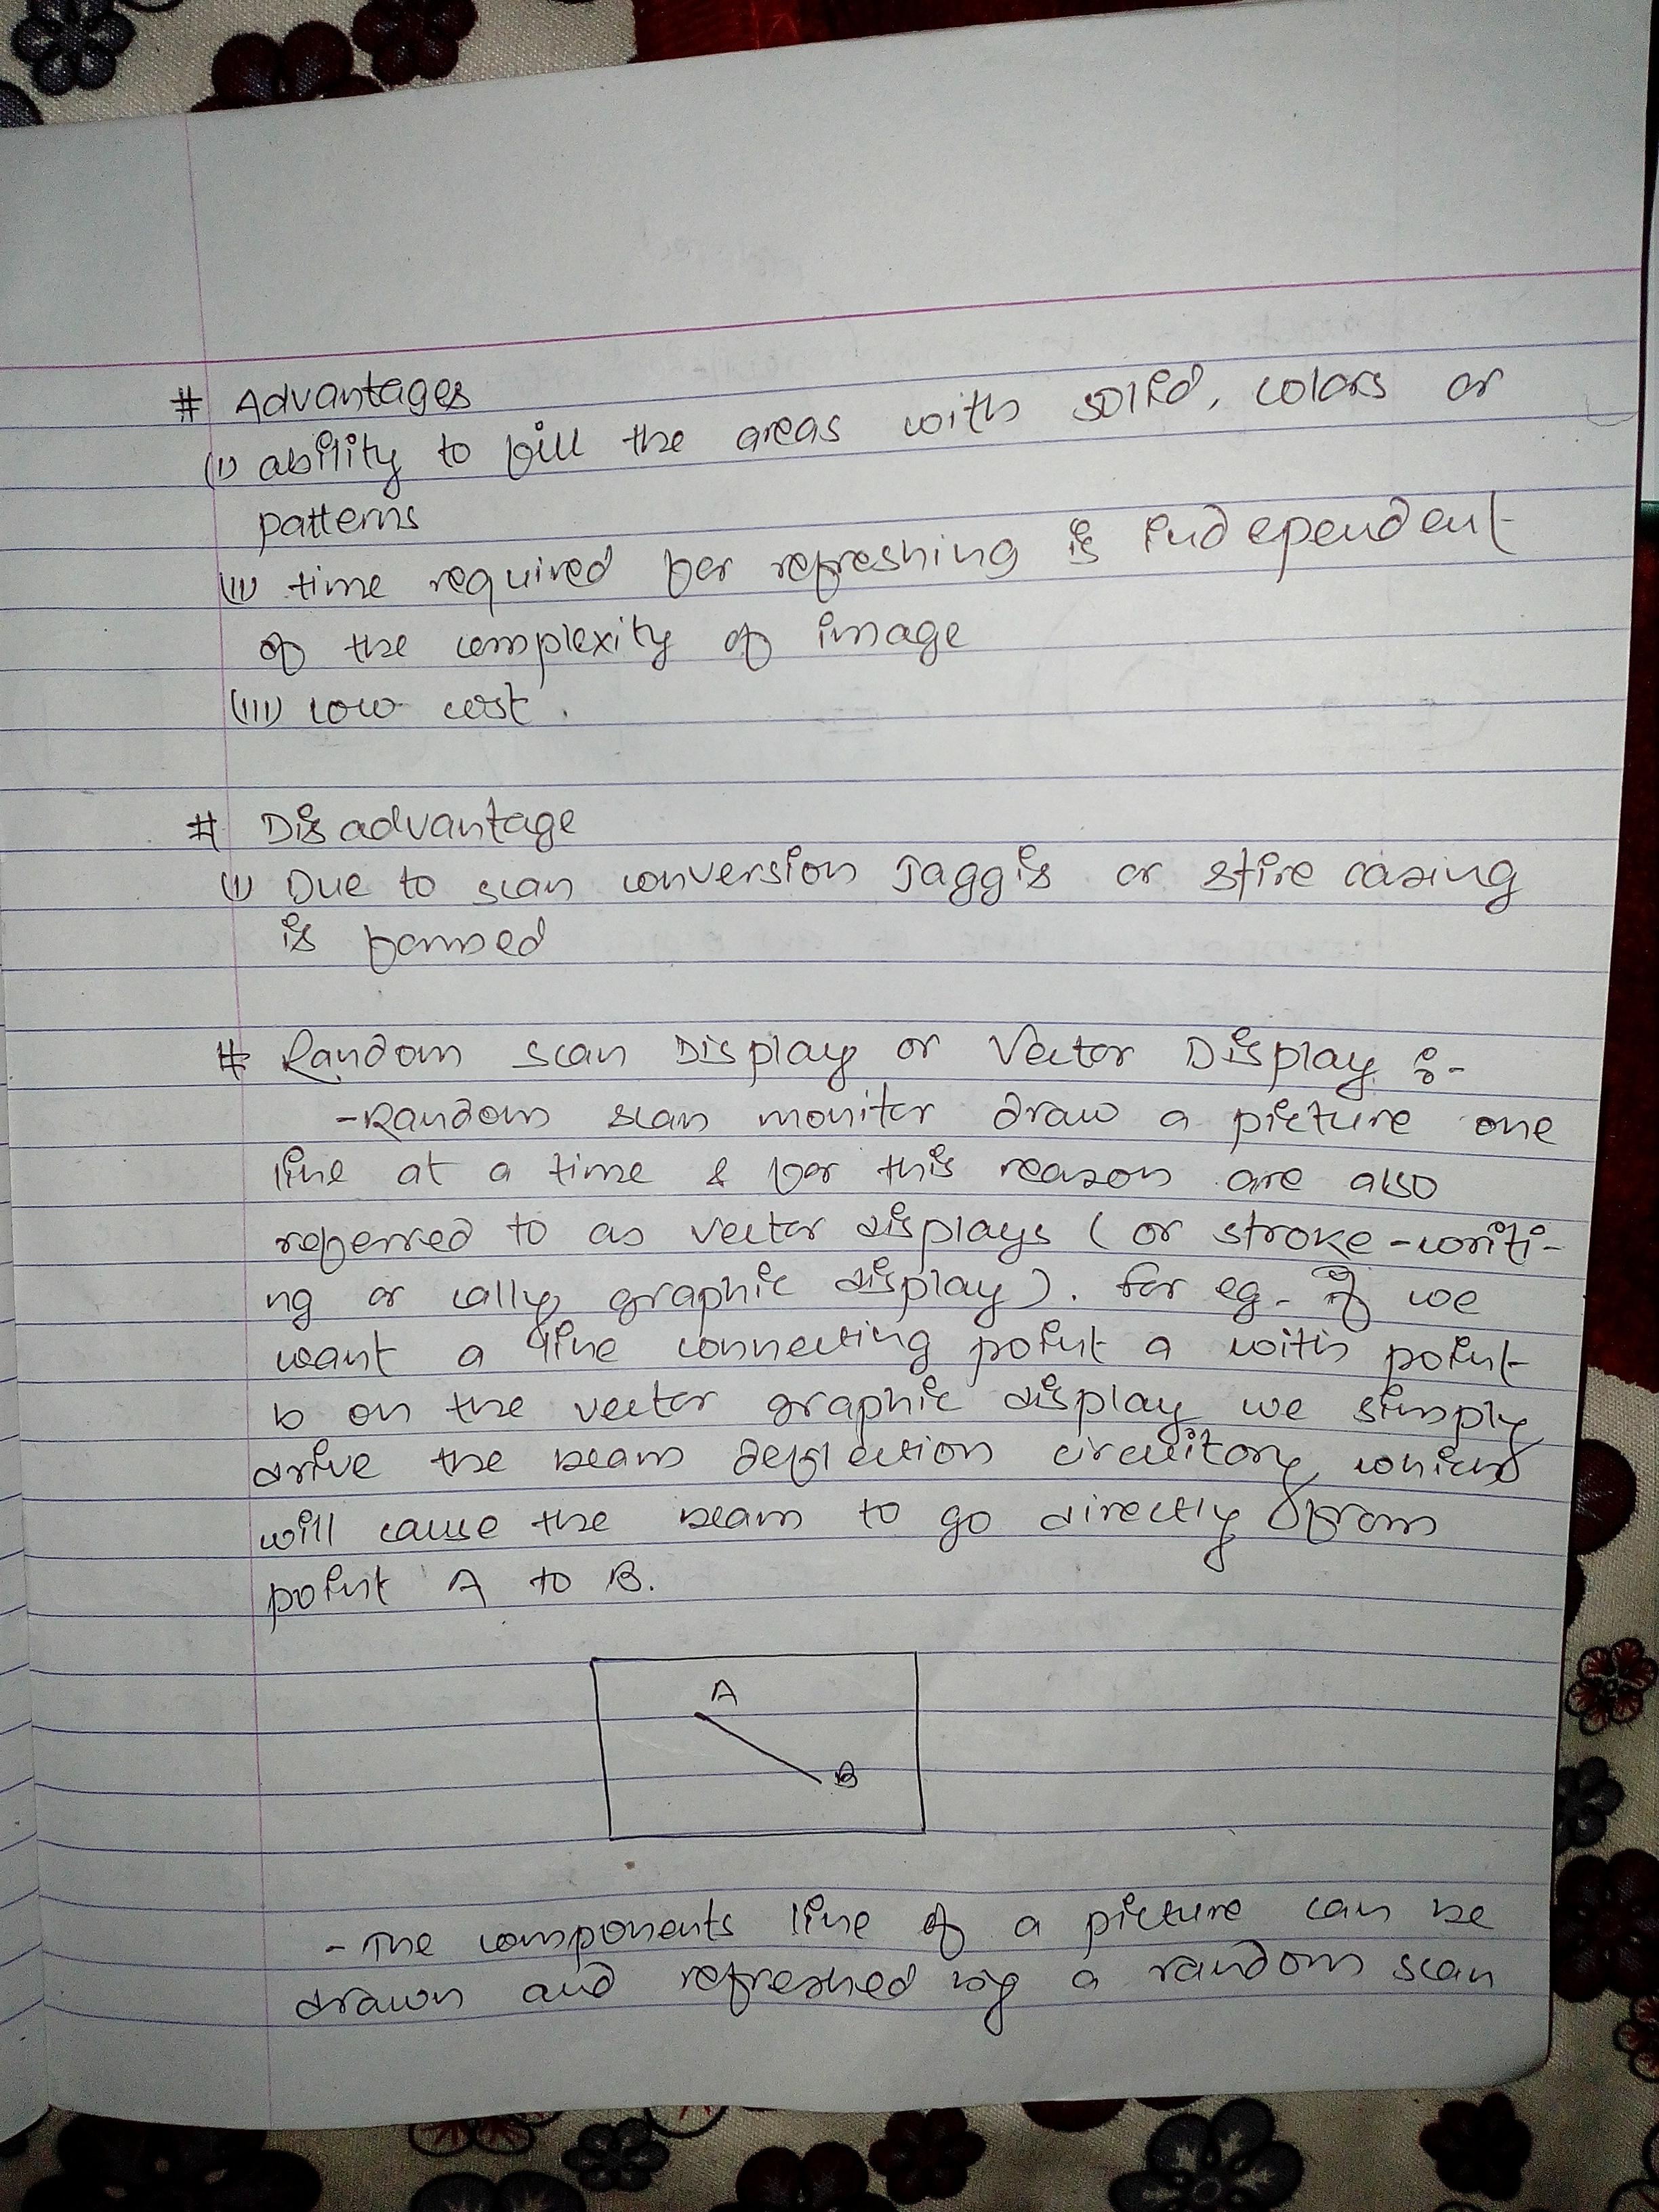 # Advantages
(i) ability to fill the areas with solid, colors or
patterns
(ii) time required for refreshing is independent
of the complexity of image
(iii) low cost.
# Disadvantage
(i) Due to scan conversion Jaggis or stire casing
is formed
# Random scan Display or Vector Display :-
- Random scan monitor draw a picture one
line at a time & for this reason are also
referred to as vector displays (or stroke-writi-
ng or cally graphic display). for eg. if we
want a line connecting point a with point
b on the vector graphic display we simply
drive the beam deflection circuitory which
will cause the beam to go directly from
point A to B.
A
B
- The components line of a picture can be
drawn and refreshed by a random scan